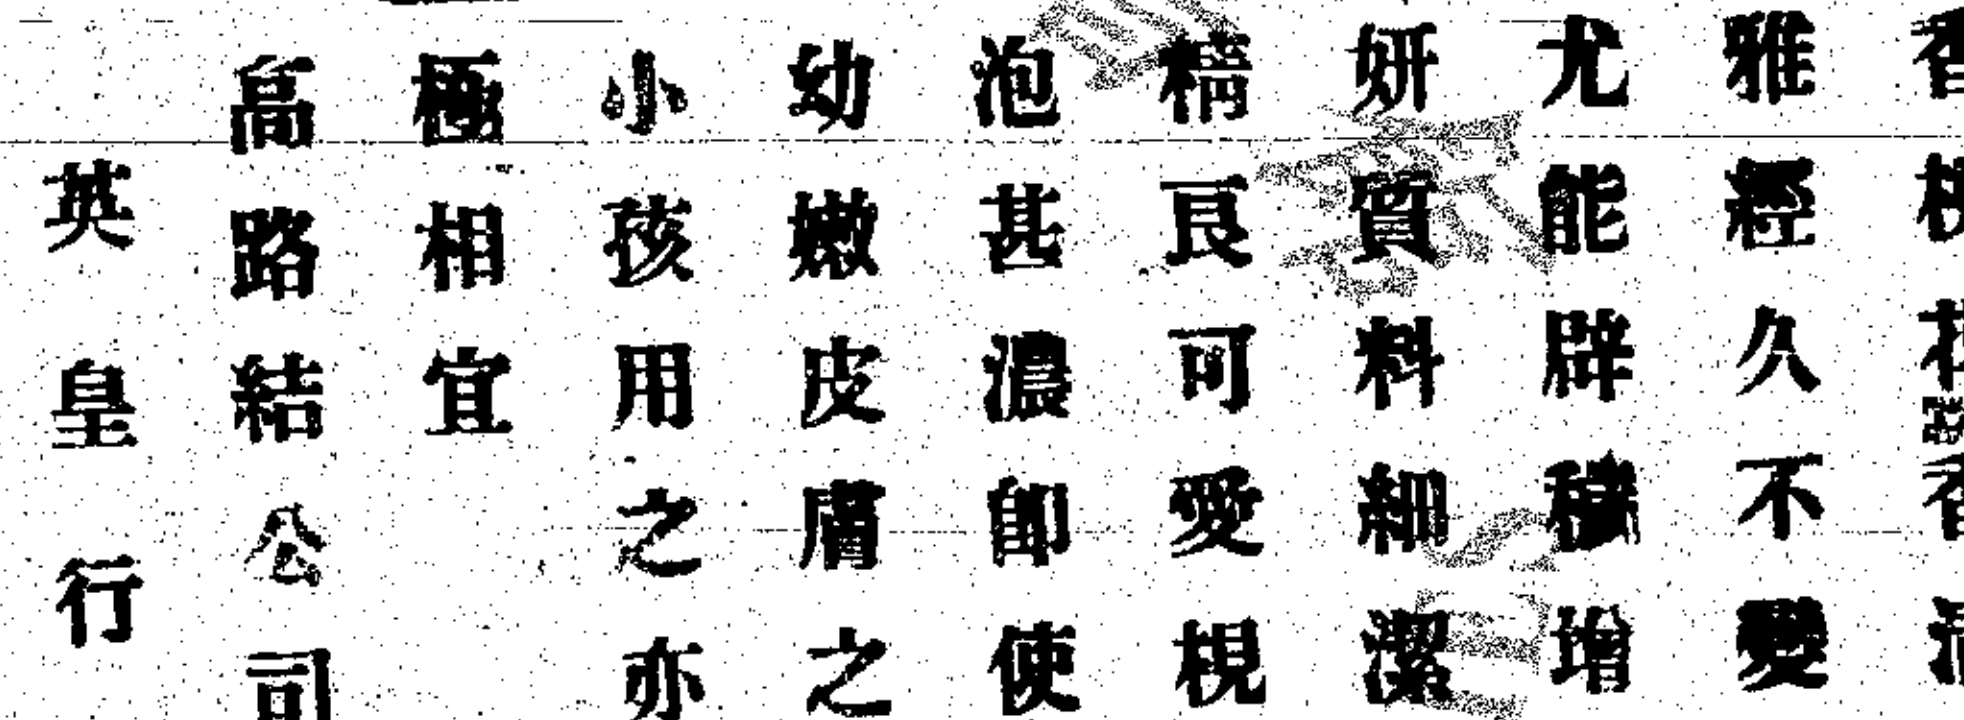 香
雅經久不變
尤能辟穢增
妍質料細潔
精良可愛梘
泡甚濃即使
幼嫩皮膚之
小孩用之亦
極相宜
高路結公司
英皇行